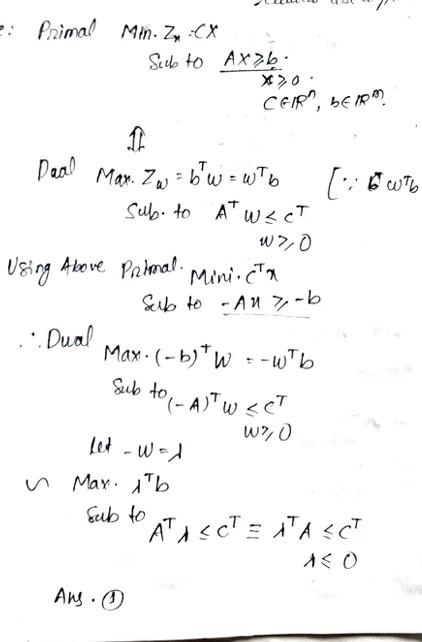 e: Primal Min. Zx = CX
Sub to AX ≥ b.
x ≥ 0.
C ∈ IRⁿ, b ∈ IRᵐ.
⇕
Dual Max. Zw = bᵀw = wᵀb [∵ wᵀb
Sub. to Aᵀ w ≤ cᵀ
w ≥ 0
Using Above Primal. Mini. cᵀx
Sub to -Ax ≥ -b
∴ Dual
Max. (-b)ᵀ w = -wᵀb
Sub to (-A)ᵀ w ≤ cᵀ
w ≥ 0
let -w = λ
∽ Max. λᵀb
Sub to
Aᵀ λ ≤ cᵀ ≡ λᵀA ≤ cᵀ
λ ≤ 0
Ans. ①